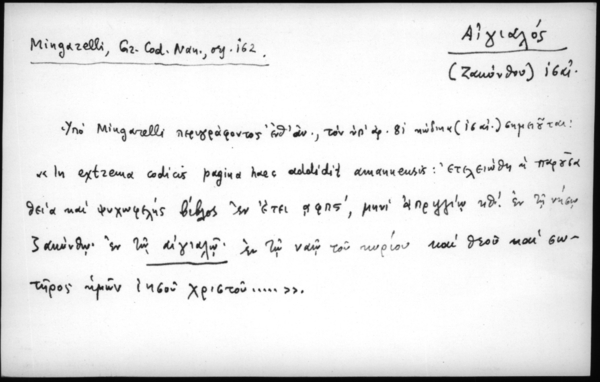 Mingarelli, Gr. Cod. Nan., σγ. 162.
Αἰγιαλός
(Ζακύνθου) ις΄ αἰ.
Ὑπό Mingarelli περιγράφοντος ἔνθ' ἀν., τόν ὑπ' ἀρ. 81 κώδικα (ις΄ αἰ.) σημειοῦται:
« In extrema codicis pagina haec addidit amanuensis: Ἐτελειώθη ἡ παροῦσα
θεία καί ψυχωφελής βίβλος ἐν ἔτει αφπς΄, μηνί ἀπριλλίῳ κθ΄. ἐν τῇ νήσῳ
Ζακύνθῳ. ἐν τῷ αἰγιαλῷ. ἐν τῷ ναῷ τοῦ κυρίου καί θεοῦ καί σω-
τῆρος ἡμῶν Ἰησοῦ Χριστοῦ..... ».